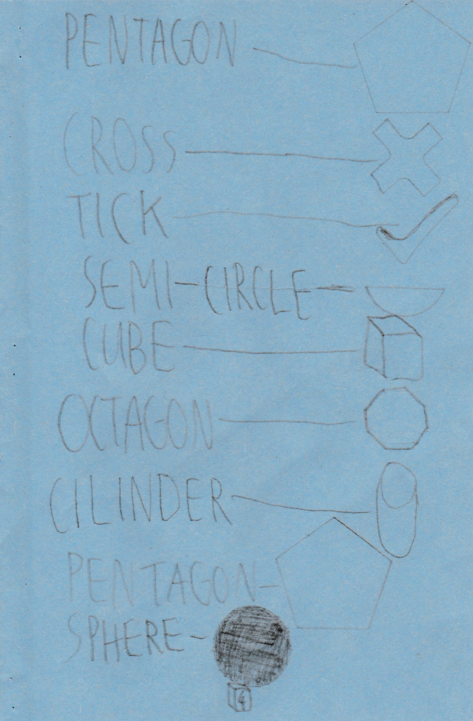 PENTAGON
CROSS
TICK
SEMI-CIRCLE
CUBE
OCTAGON
CILINDER
PENTAGON
SPHERE